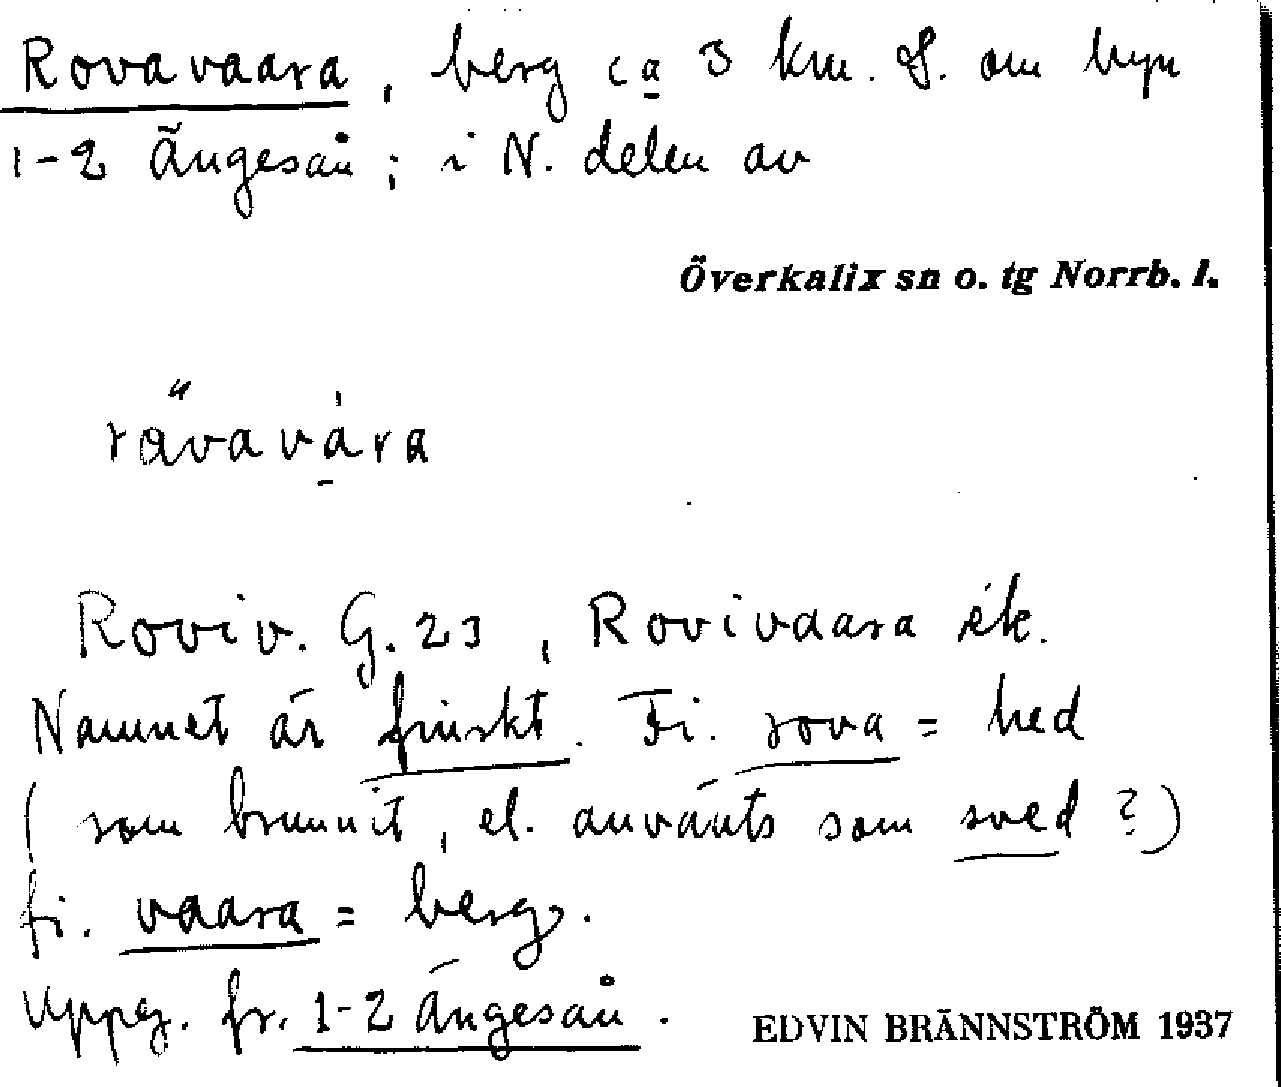 Rovavaara, berg ca 3 km. S. om byn
1-2 Ängesån; i N. delen av
Överkalix sn o. tg Norrb. l.
råvavåra
Roviv. G. 23, Rovivaara ek.
Namnet är finskt. Fi. rova = hed
(som brunnit, el. använts som sved?)
fi. vaara = berg.
Uppg. fr. 1-2 Ängesån.
EDVIN BRÄNNSTRÖM 1937